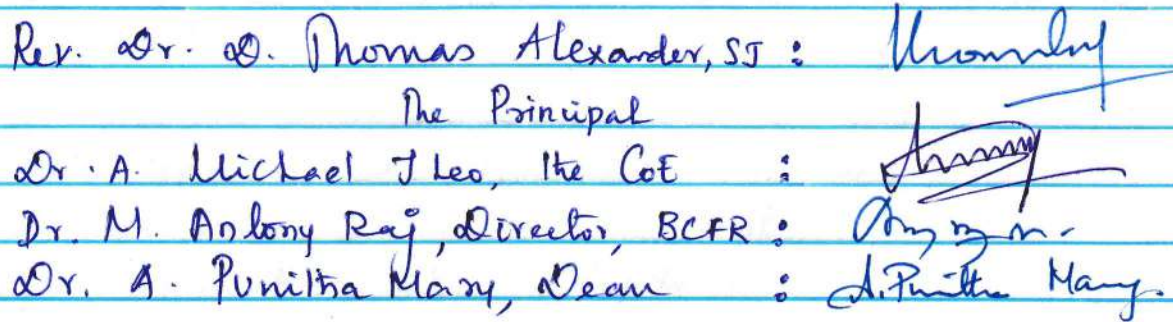 Rev. Dr. D. Thomas Alexander, SJ :
The Principal
Dr. A. Michael J Leo, the CoE :
Dr. M. Antony Raj, Director, BCFR :
Dr. A. Punitha Mary, Dean : A. Punitha Mary.